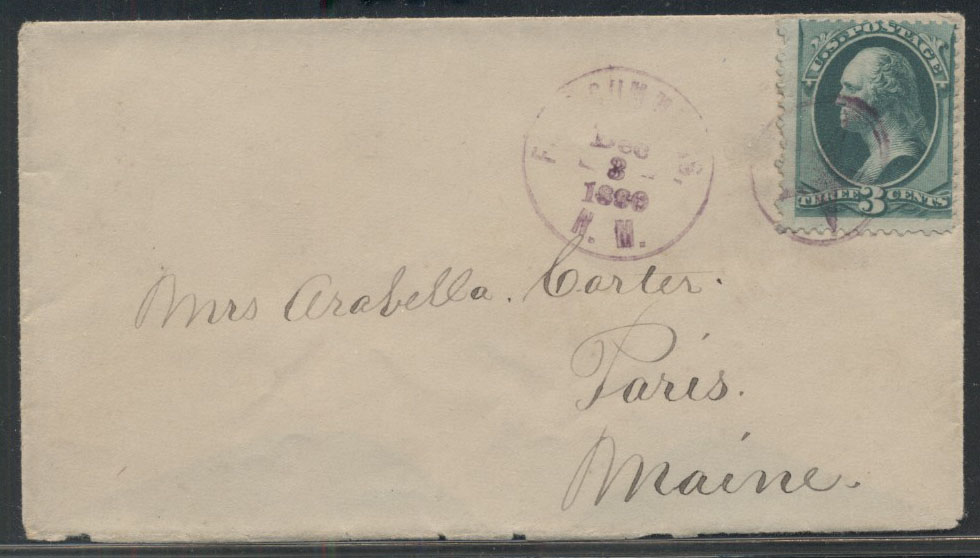 U.S. POSTAGE
THREE 3 CENTS
Dec
3
N. M.
Mrs Arabella. Carter.
Paris.
Maine.